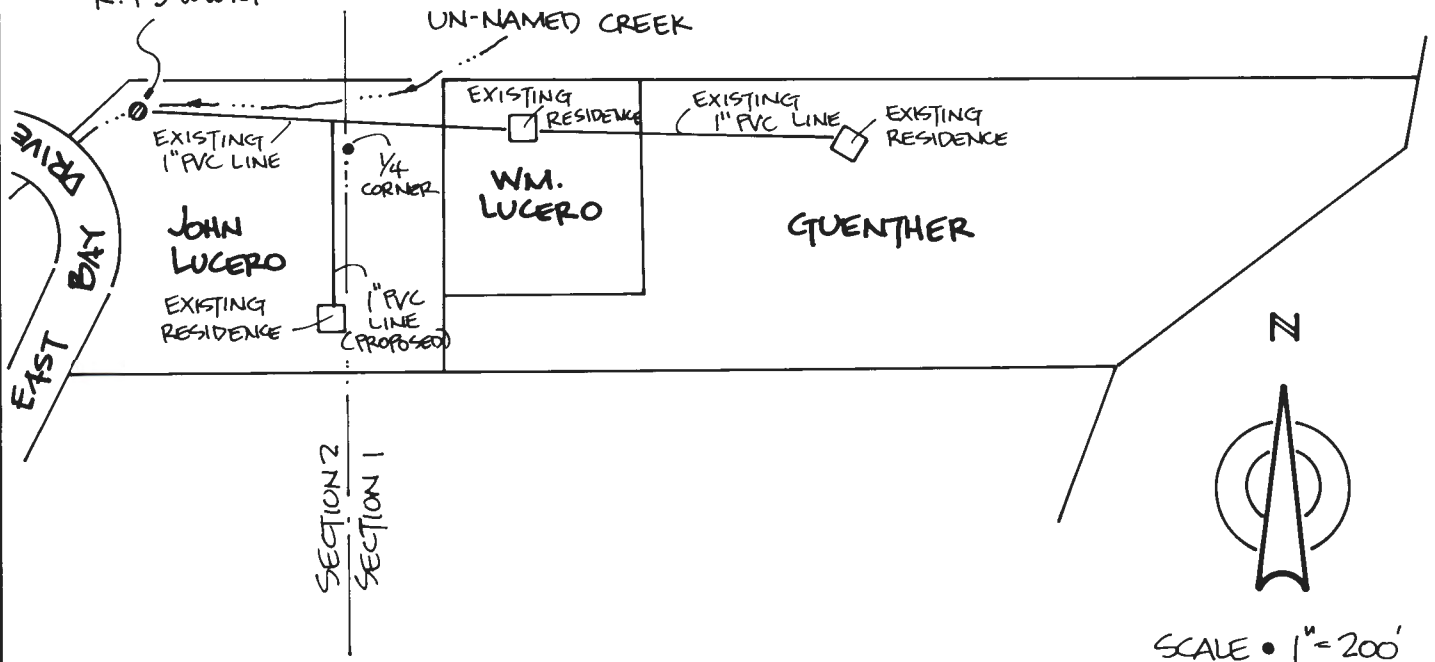 UN-NAMED CREEK
EXISTING
RESIDENCE
EXISTING
1" PVC LINE
EXISTING
RESIDENCE
EXISTING
1" PVC LINE
1/4
CORNER
WM.
LUCERO
GUENTHER
JOHN
LUCERO
EXISTING
RESIDENCE
1" PVC
LINE
(PROPOSED)
EAST BAY DRIVE
SECTION 2
SECTION 1
N
SCALE • 1" = 200'